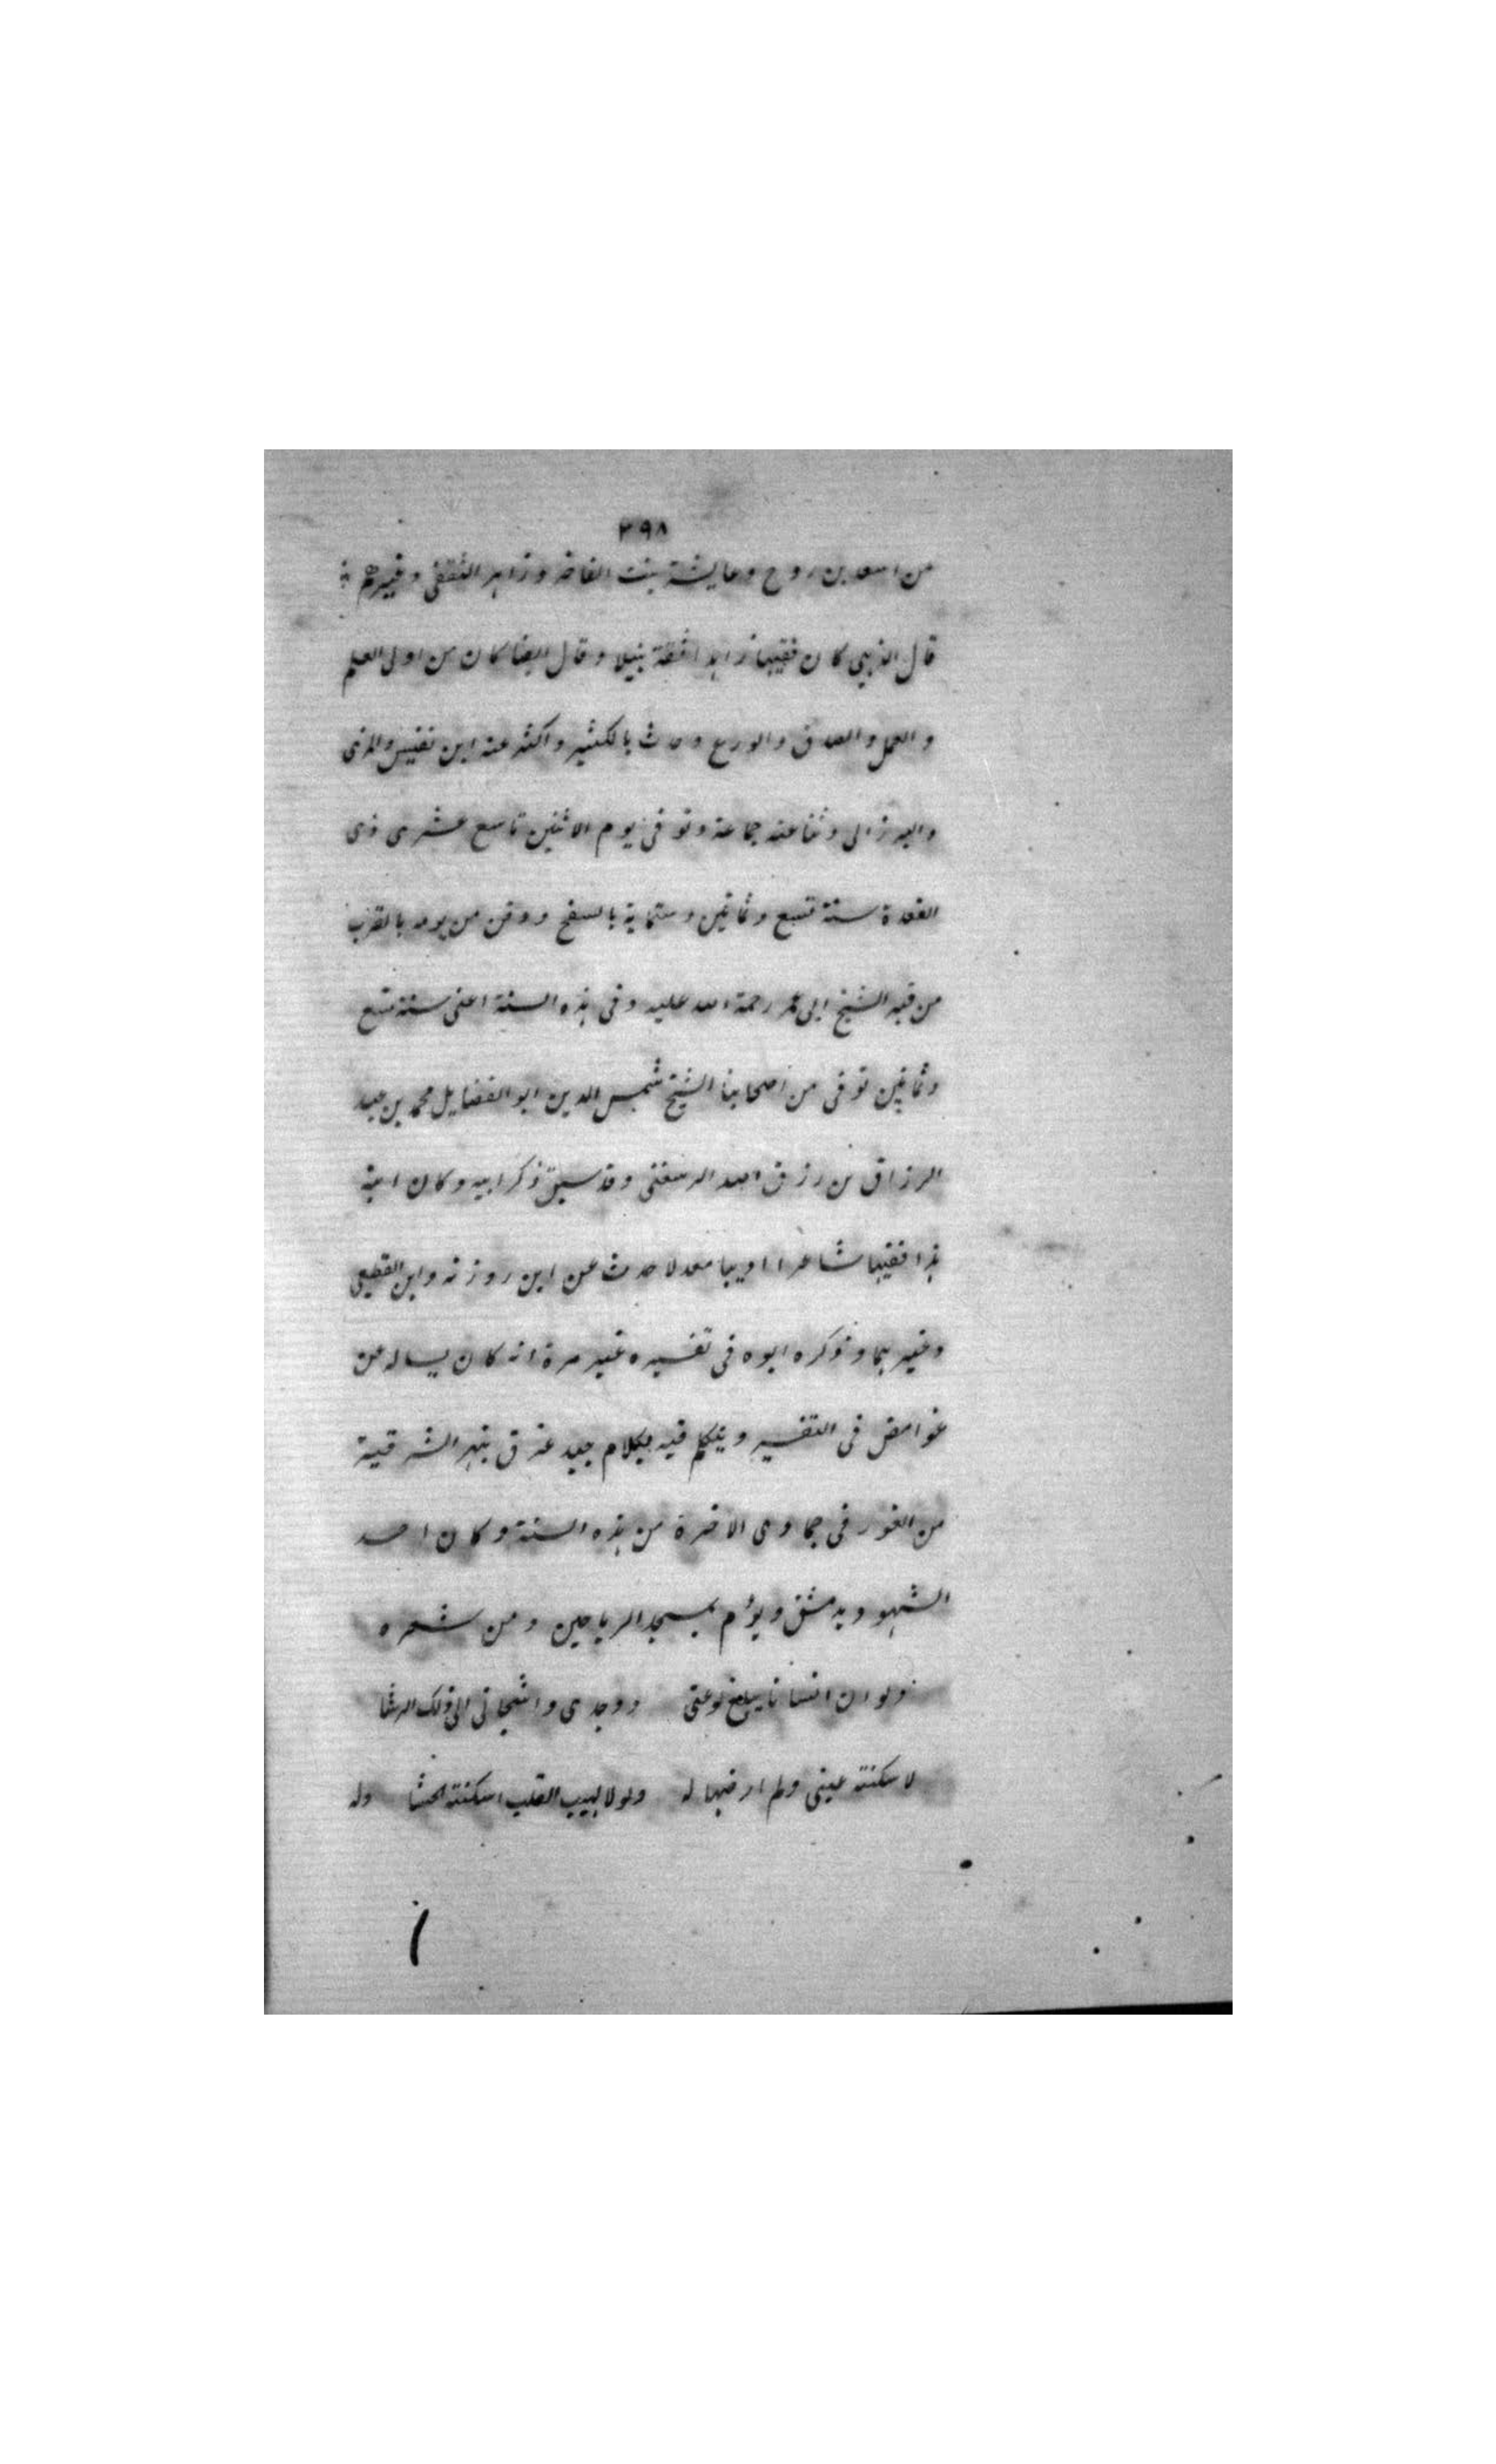 ٣٩٨
من اسعد بن روح وعايشة بنت الفاخر وزاهر الثقفى وغيرهم
قال الذهبى كان فقيها زاهدا ثقة نبيلا وقال ايضا كان من اولى العلم
والعمل والصدق والورع وحدث بالكثير واكثر عنه ابن نفيس والمزى
والبرزالى وثنا عنه جماعة وتوفى يوم الاثنين تاسع عشرى ذى
القعدة سنة تسع وثمانين وستماية بالسفح ودفن من يومه بالقرب
من قبر الشيخ ابى عمر رحمة الله عليه وفى هذه السنة اعنى سنة تسع
وثمانين توفى من اصحابنا الشيخ شمس الدين ابو الفضايل محمد بن عبد
الرزاق بن رزق الله الرسعنى وقد سبق ذكر ابيه وكان ابنه
هذا فقيها شاعرا اديبا معدلا حدث عن ابن روزنه وابن القطيعى
وغيرهما وذكره ابوه فى تفسيره غير مرة انه كان يساله عن
غوامض فى التفسير ويتكلم فيه بكلام جيد غرق بنهر الشرقية
من الغور فى جمادى الاخرة من هذه السنة وكان احد
الشهود بدمشق ويؤم بمسجد الرياحين ومن شعره
ولو ان انسانا يبلغ لوعتى ووجدى واشجانى الى ذلك الرشا
لاسكنته عينى ولم ارضها له ولولا لهيب القلب اسكنته الحشا وله